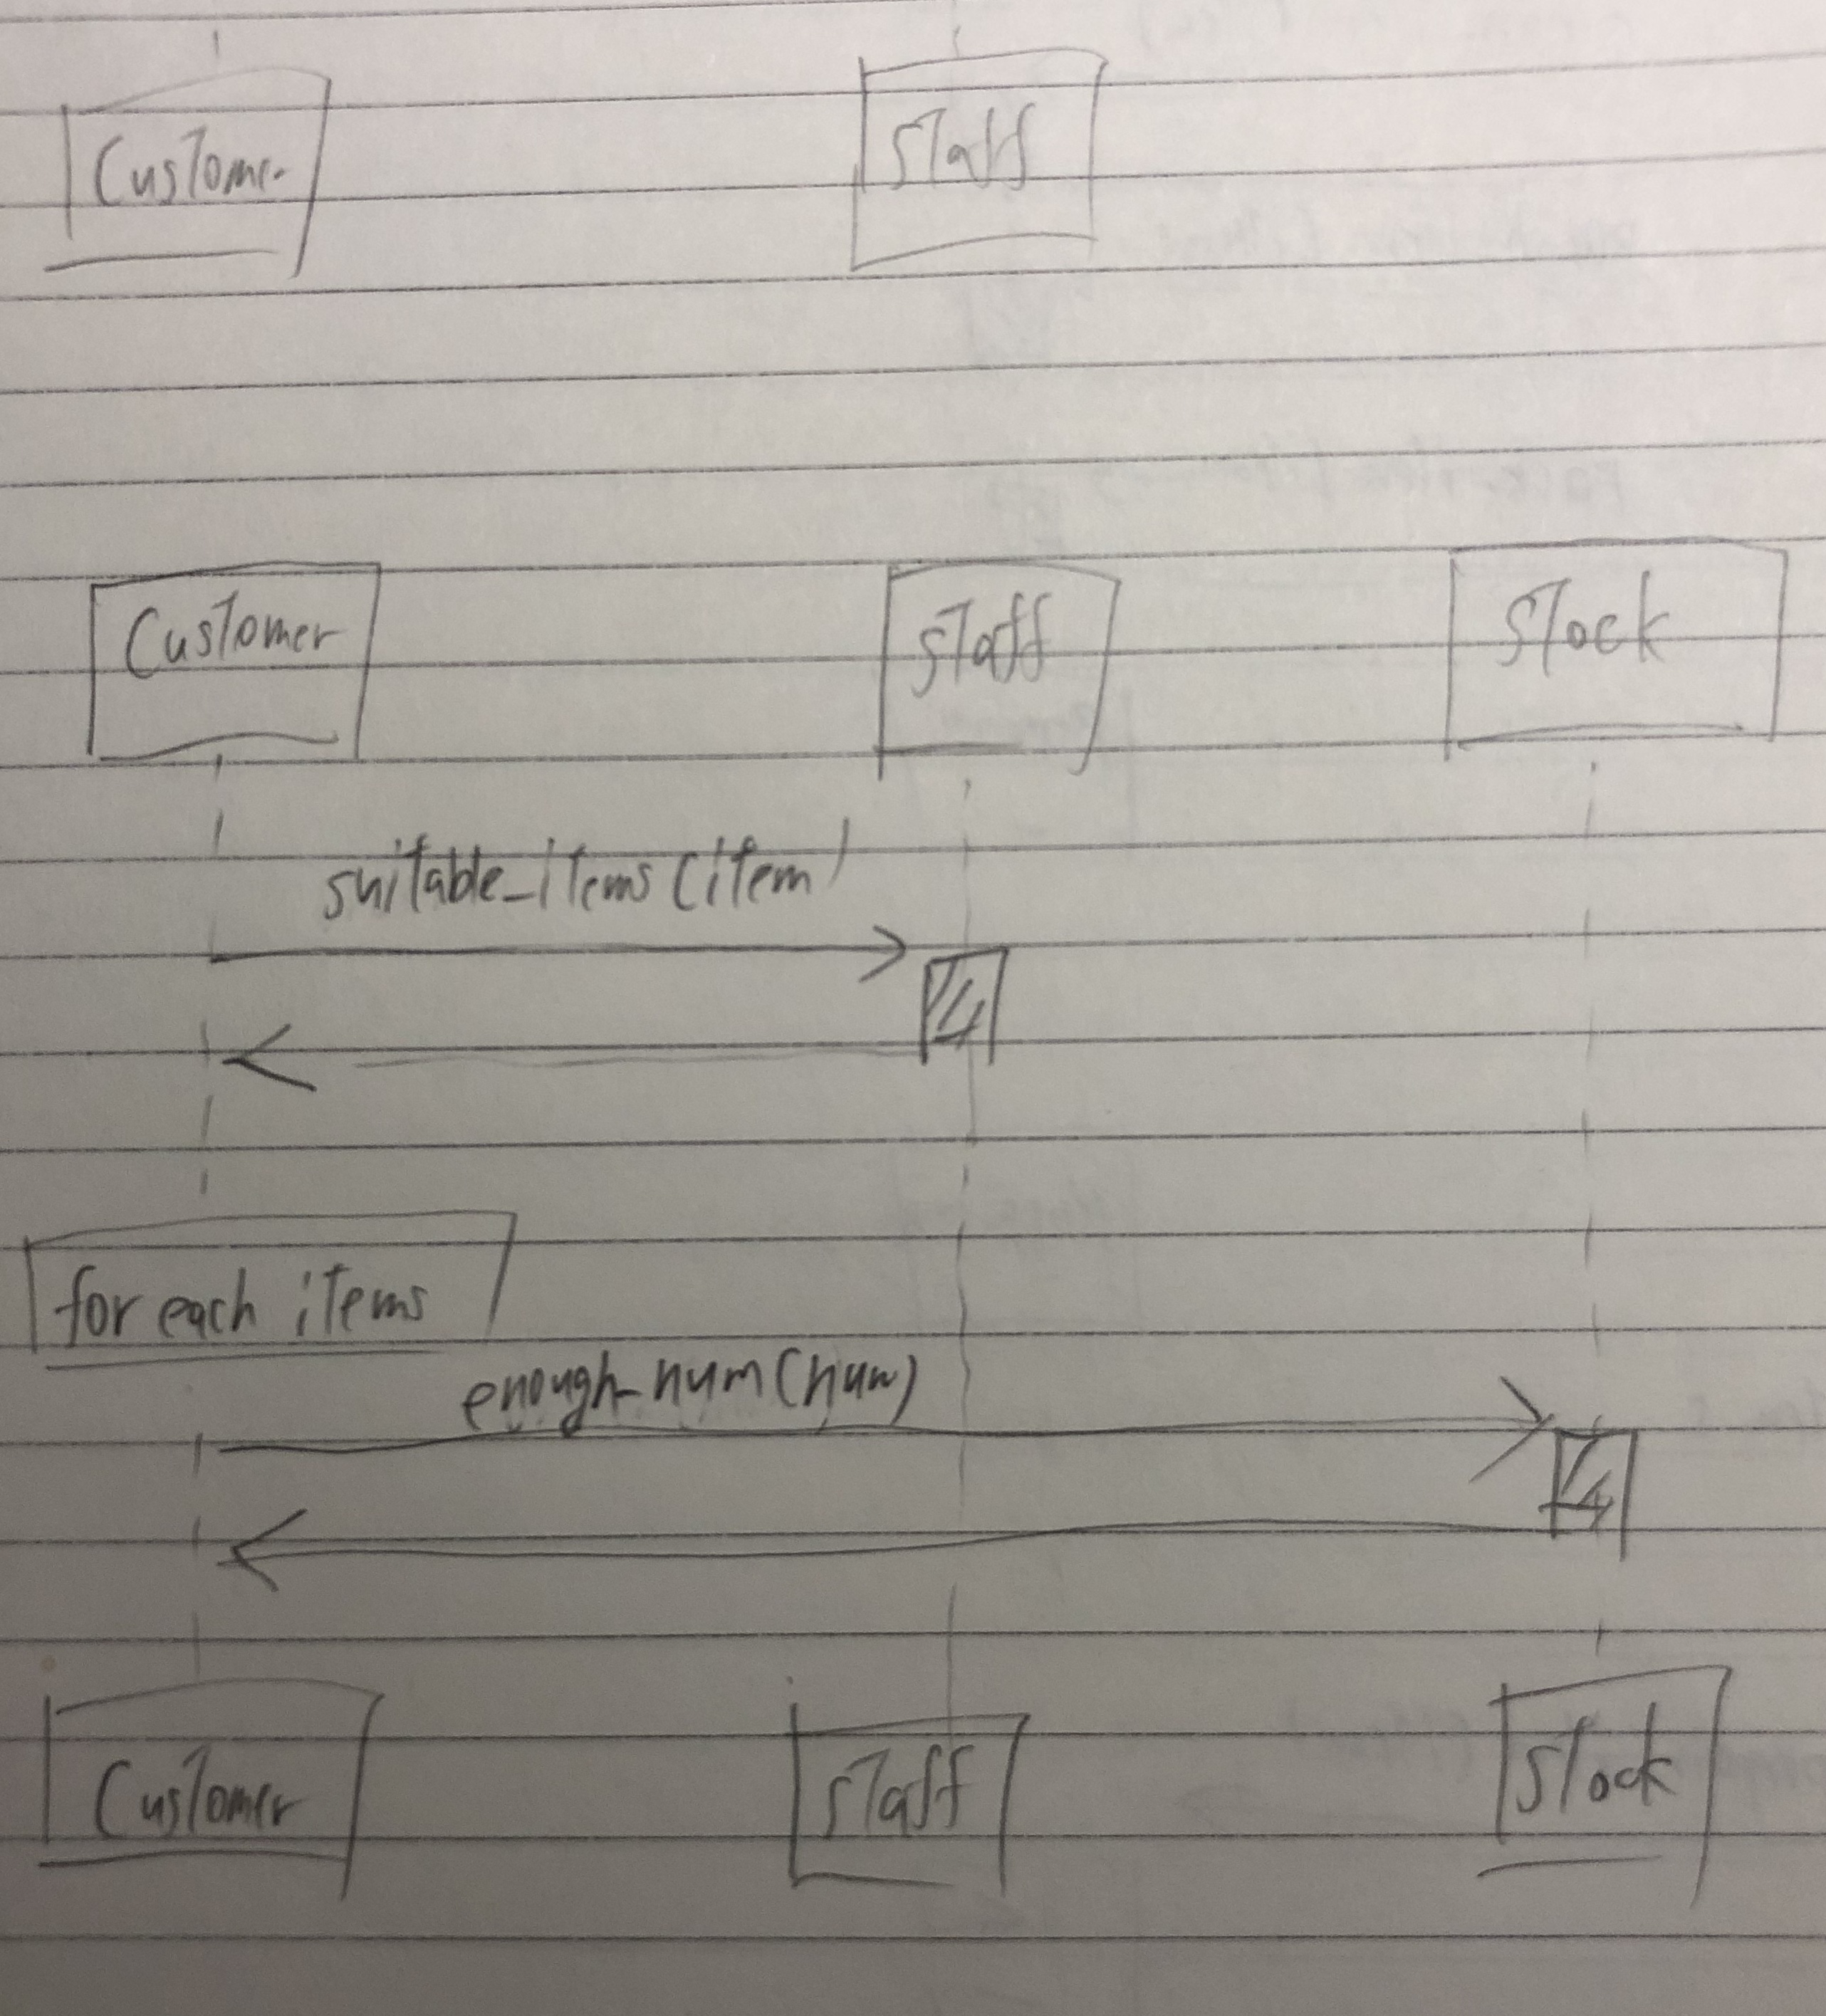 Customer
Staff
Customer
Staff
Stock
suitable_items (item)
for each items
enough_num (num)
Customer
Staff
Stock